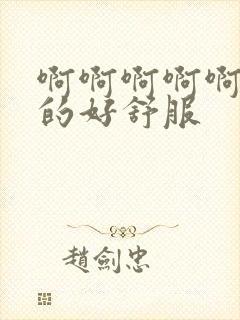 啊啊啊啊啊
的好舒服
趙劍忠